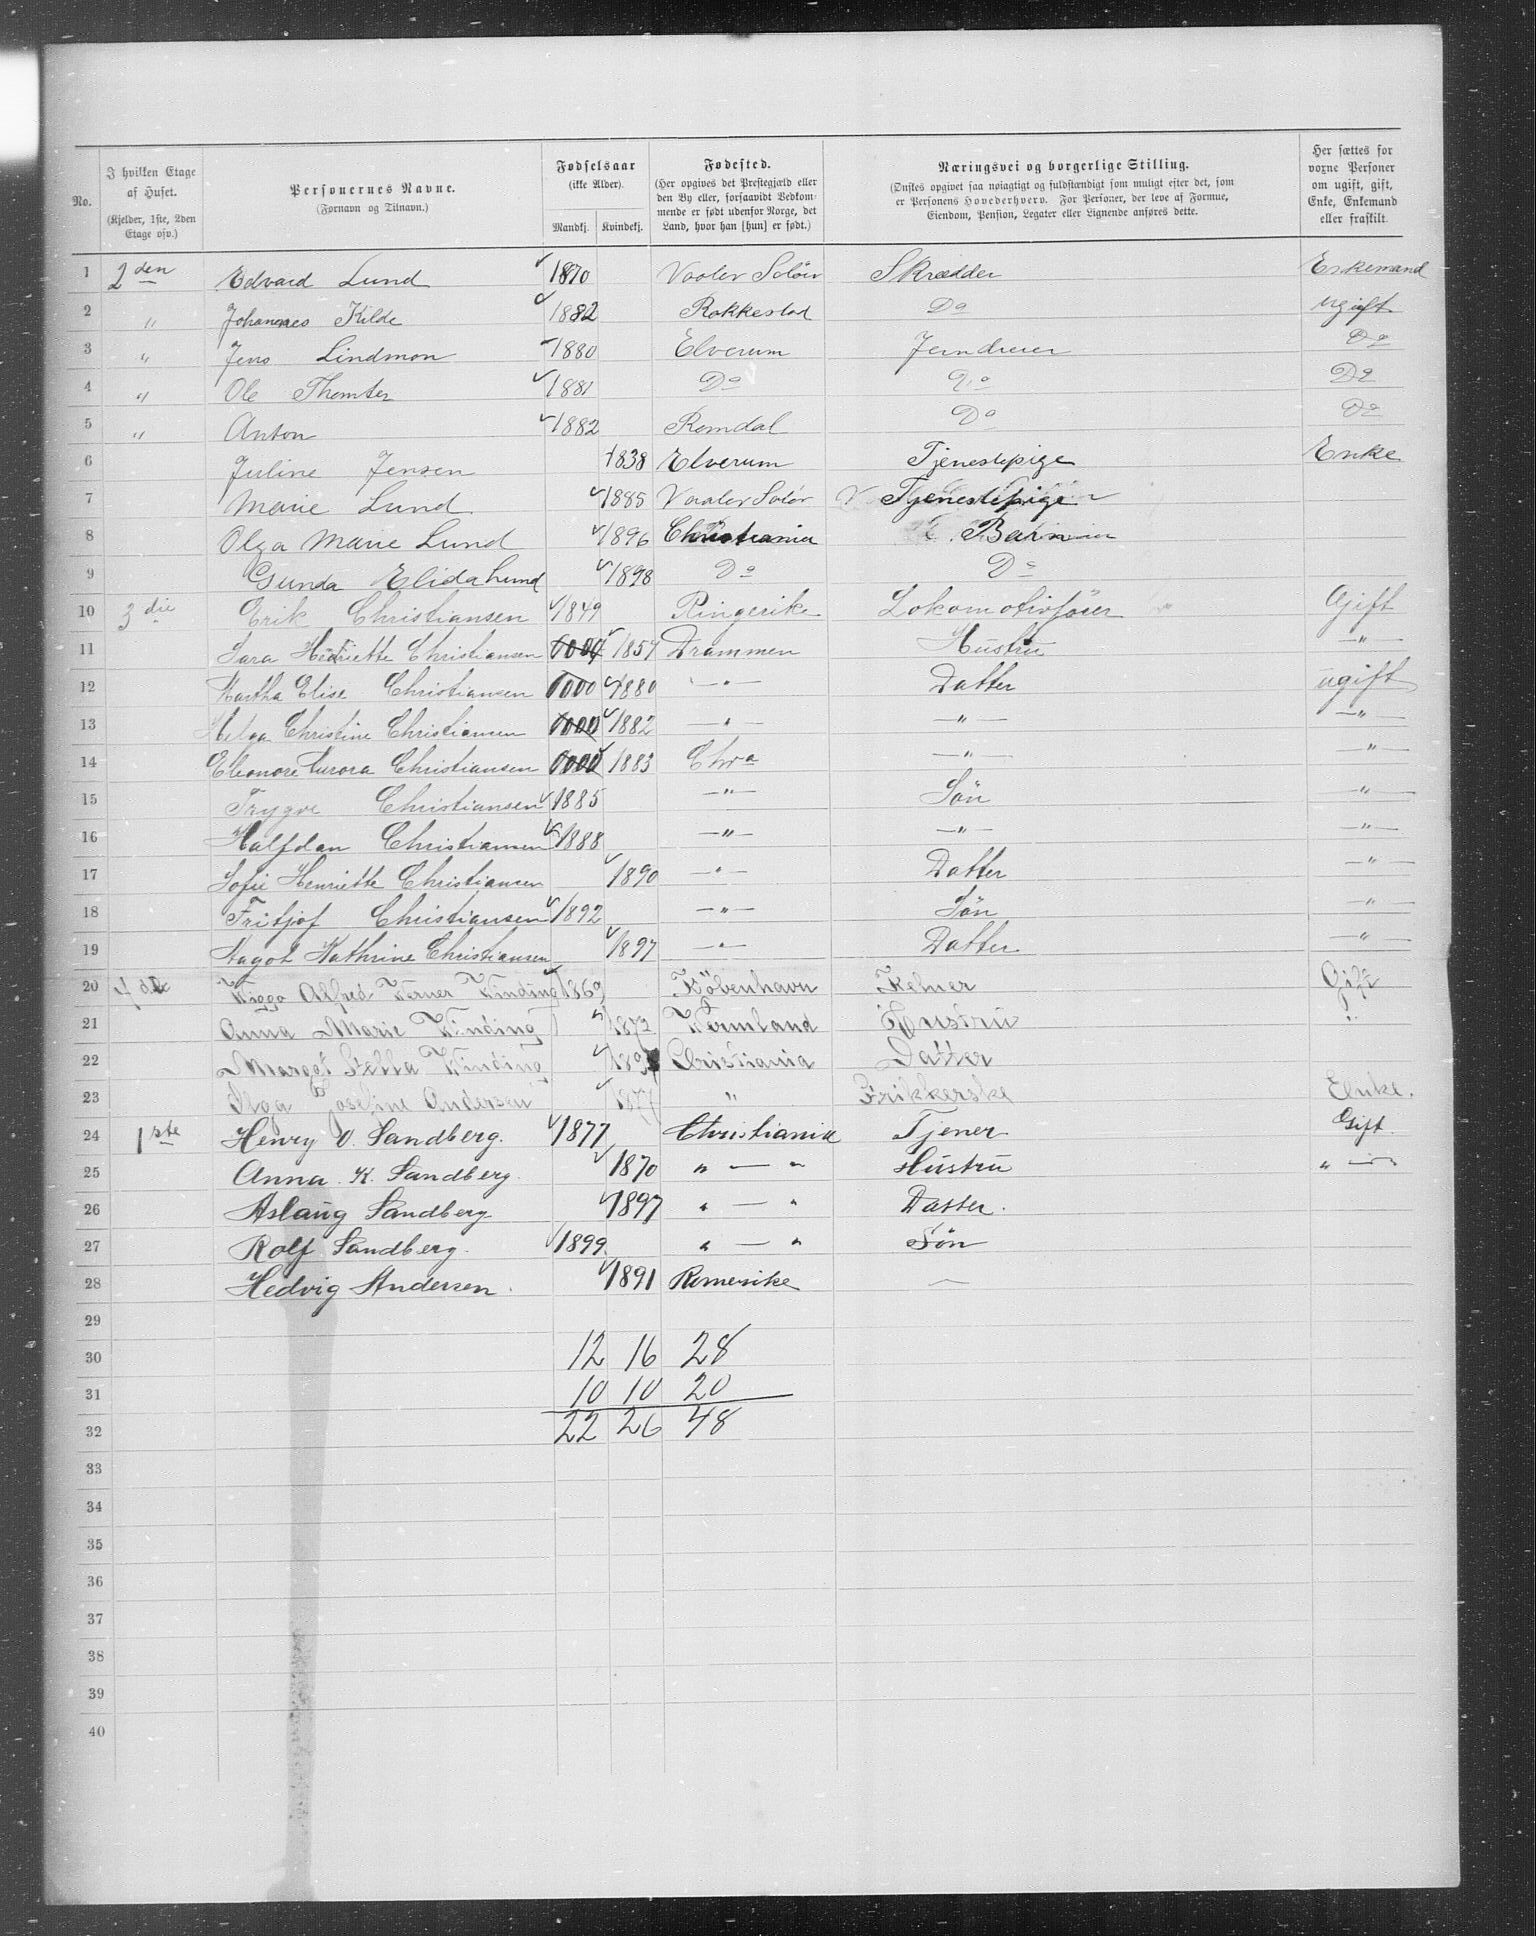 No. I hvilken Etage af Huset. (Kjelder, 1ste, 2den Etage osv.) Personernes Navne. (Fornavn og Tilnavn.) Fødselsaar (ikke Alder). Mandkj. Kvindekj. Fødested. (Her opgives det Prestegjæld eller den By eller, forsaavidt Vedkommende er født udenfor Norge, det Land, hvor han [hun] er født.) Næringsvei og borgerlige Stilling. (Ønskes opgivet saa nøiagtigt og fuldstændigt som muligt efter det, som er Personens Hovederhverv. For Personer, der leve af Formue, Eiendom, Pension, Legater eller Lignende anføres dette. Her sættes for voxne Personer om ugift, gift, Enke, Enkemand eller fraskilt.
1 2den Edvard Lund 1870 Vaaler Solør Skrædder Enkemand
2 " Johannes Kilde 1882 Rakkestad Do ugift
3 " Jens Lindmon 1880 Elverum Jerndreier Do
4 " Ole Thomter 1881 Do Do Do
5 " Anton 1882 Romdal Do Do
6 Juline Jensen 1838 Elverum Tjenestepige Enke
7 Marie Lund 1885 Vaaler Solør Tjenestepige
8 Olga Marie Lund 1896 Christiania Barn
9 Gunda Elida Lund 1898 Do Do
10 3die Erik Christiansen 1849 Ringerike Lokomotivfører Gift
11 Sara Hedriette Christiansen 1857 Drammen Hustru — " —
12 Martha Elise Christiansen 1880 — " — Datter ugift
13 Helga Christine Christiansen 1882 — " — — " — — " —
14 Eleonore Aurora Christiansen 1883 Chra — " — — " —
15 Trygve Christiansen 1885 — " — Søn — " —
16 Halfdan Christiansen 1888 — " — — " — — " —
17 Sofie Henriette Christiansen 1890 — " — Datter — " —
18 Fritjof Christiansen 1892 — " — Søn — " —
19 Magot Kathrine Christiansen 1897 — " — Datter — " —
20 4de Wiggo Alfred Werner Winding 1869 Köbenhavn Kelner Gift
21 Anna Marie Winding 1872 Wermland Hustru "
22 Margot Stella Winding Christiania Datter
23 Olga Josefine Andersen 1877 " Frikkerske Enke.
24 1ste Henry O. Sandberg. 1877 Christiania Tjener Gift.
25 Anna. K. Sandberg. 1870 " — " Hustru " — "
26 Aslaug Sandberg 1897 " — " Datter.
27 Rolf Sandberg. 1899 " — " Søn
28 Hedvig Andersen. 1891 Romerike —
29
30 12 16 28
31 10 10 20
32 22 26 48
33
34
35
36
37
38
39
40